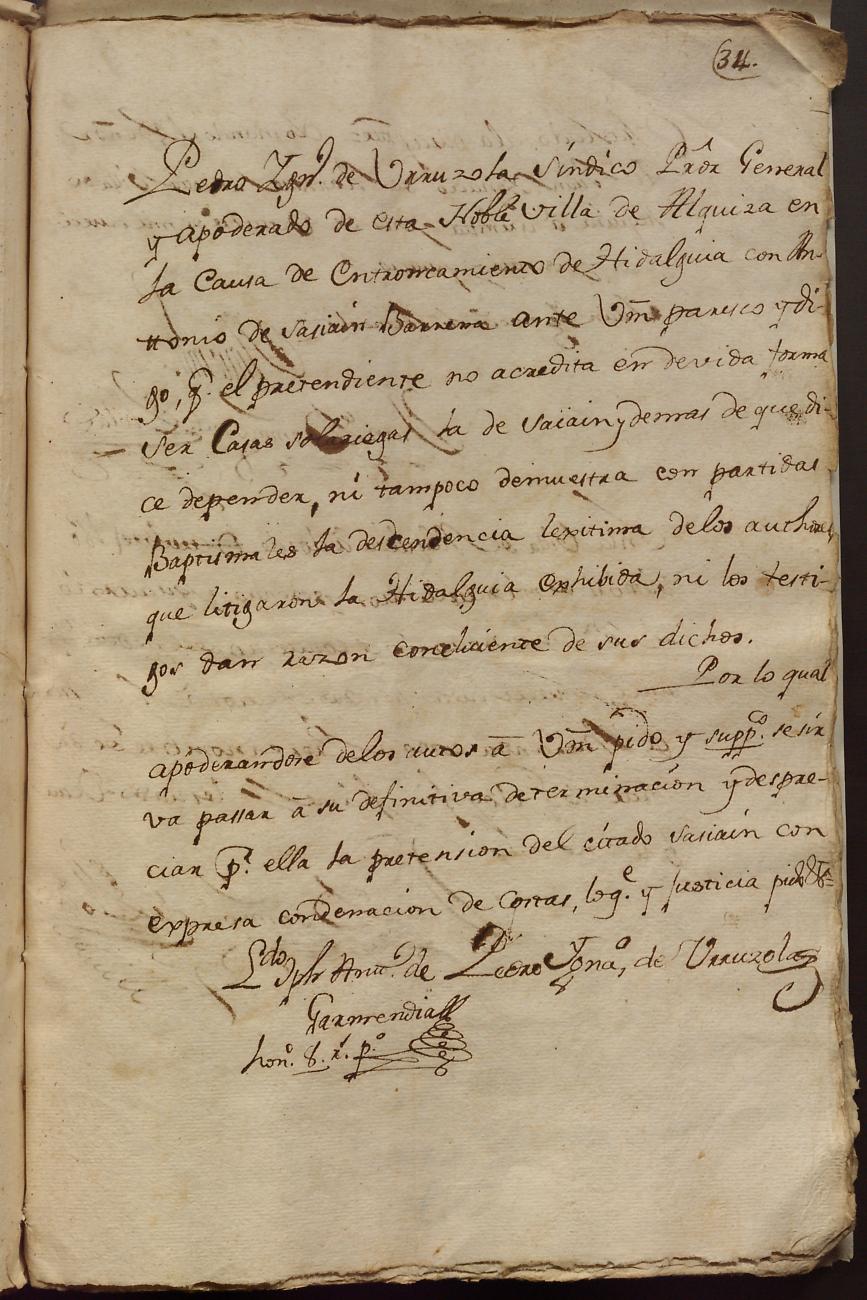 34.
Pedro Ygn.º de Urruzola Síndico Prôr General
y apoderado de esta Noble villa de Alquiza en
la Causa de Entroncamiento de Hidalguia con An-
ttonio de Sasiain Barrena ante Vm̃ paresco y di-
go, q.e el pretendiente no acredita en devida forma
ser Casas solariegas la de Saiain y demas de que di-
ce depender, ni tampoco demuestra con partidas
Baptismales la descendencia lexitima delos authores
que litigaron la Hidalguia exhibida, ni los testi-
gos dan razon concluiente de sus dichos.
Por lo qual
apoderandose delos autos â Vm̃ pido y supp.co se sir
va passar â su definitiva determinacion y despre-
ciar p.r ella la pretension del citado Sasiain con
expresa condenacion de Costas, y Justicia pido &.a=
L.do Jph Ant.º de Pedro Ygna.º de Urruzola
Garmendia
hon.º 8. r.s p.º